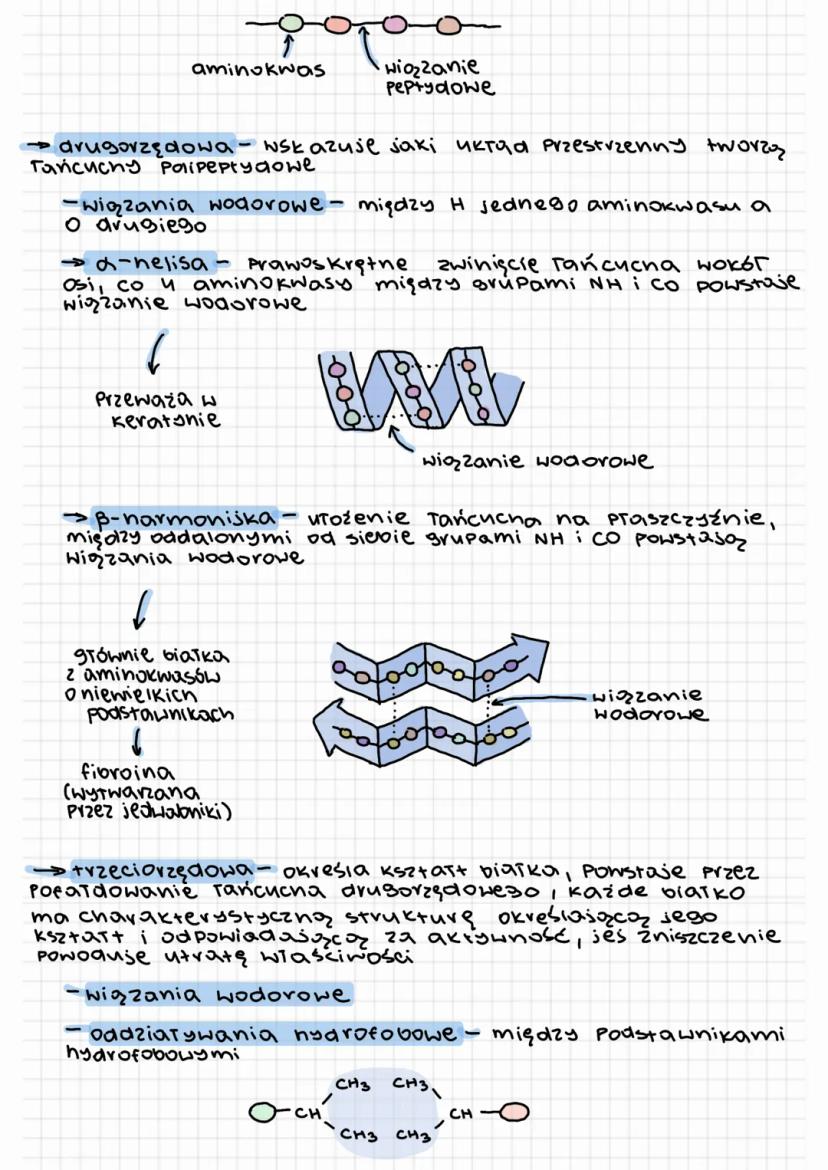 aminokwas
wiązanie
peptydowe
→ drugorzędowa - wskazuje jaki układ przestrzenny tworzą
łańcuchy polipeptydowe
- wiązania wodorowe - między H jednego aminokwasu a
O drugiego
→ α-helisa - prawoskrętne zwinięcie łańcucha wokół
osi, co 4 aminokwasy między grupami NH i CO powstaje
wiązanie wodorowe
przeważa w
keratynie
wiązanie wodorowe
→ β-harmonijka - ułożenie łańcucha na płaszczyźnie,
między oddalonymi od siebie grupami NH i CO powstają
wiązania wodorowe
głównie białka
z aminokwasów
o niewielkich
podstawnikach
wiązanie
wodorowe
fibroina
(wytwarzana
przez jedwabniki)
→ trzeciorzędową - określa kształt białka, powstaje przez
pofałdowanie łańcucha drugorzędowego, każde białko
ma charakterystyczną strukturę określającą jego
kształt i odpowiadającą za aktywność, jej zniszczenie
powoduje utratę właściwości
- wiązania wodorowe
- oddziaływania hydrofobowe - między podstawnikami
hydrofobowymi
CH3 CH3
CH CH
CH3 CH3